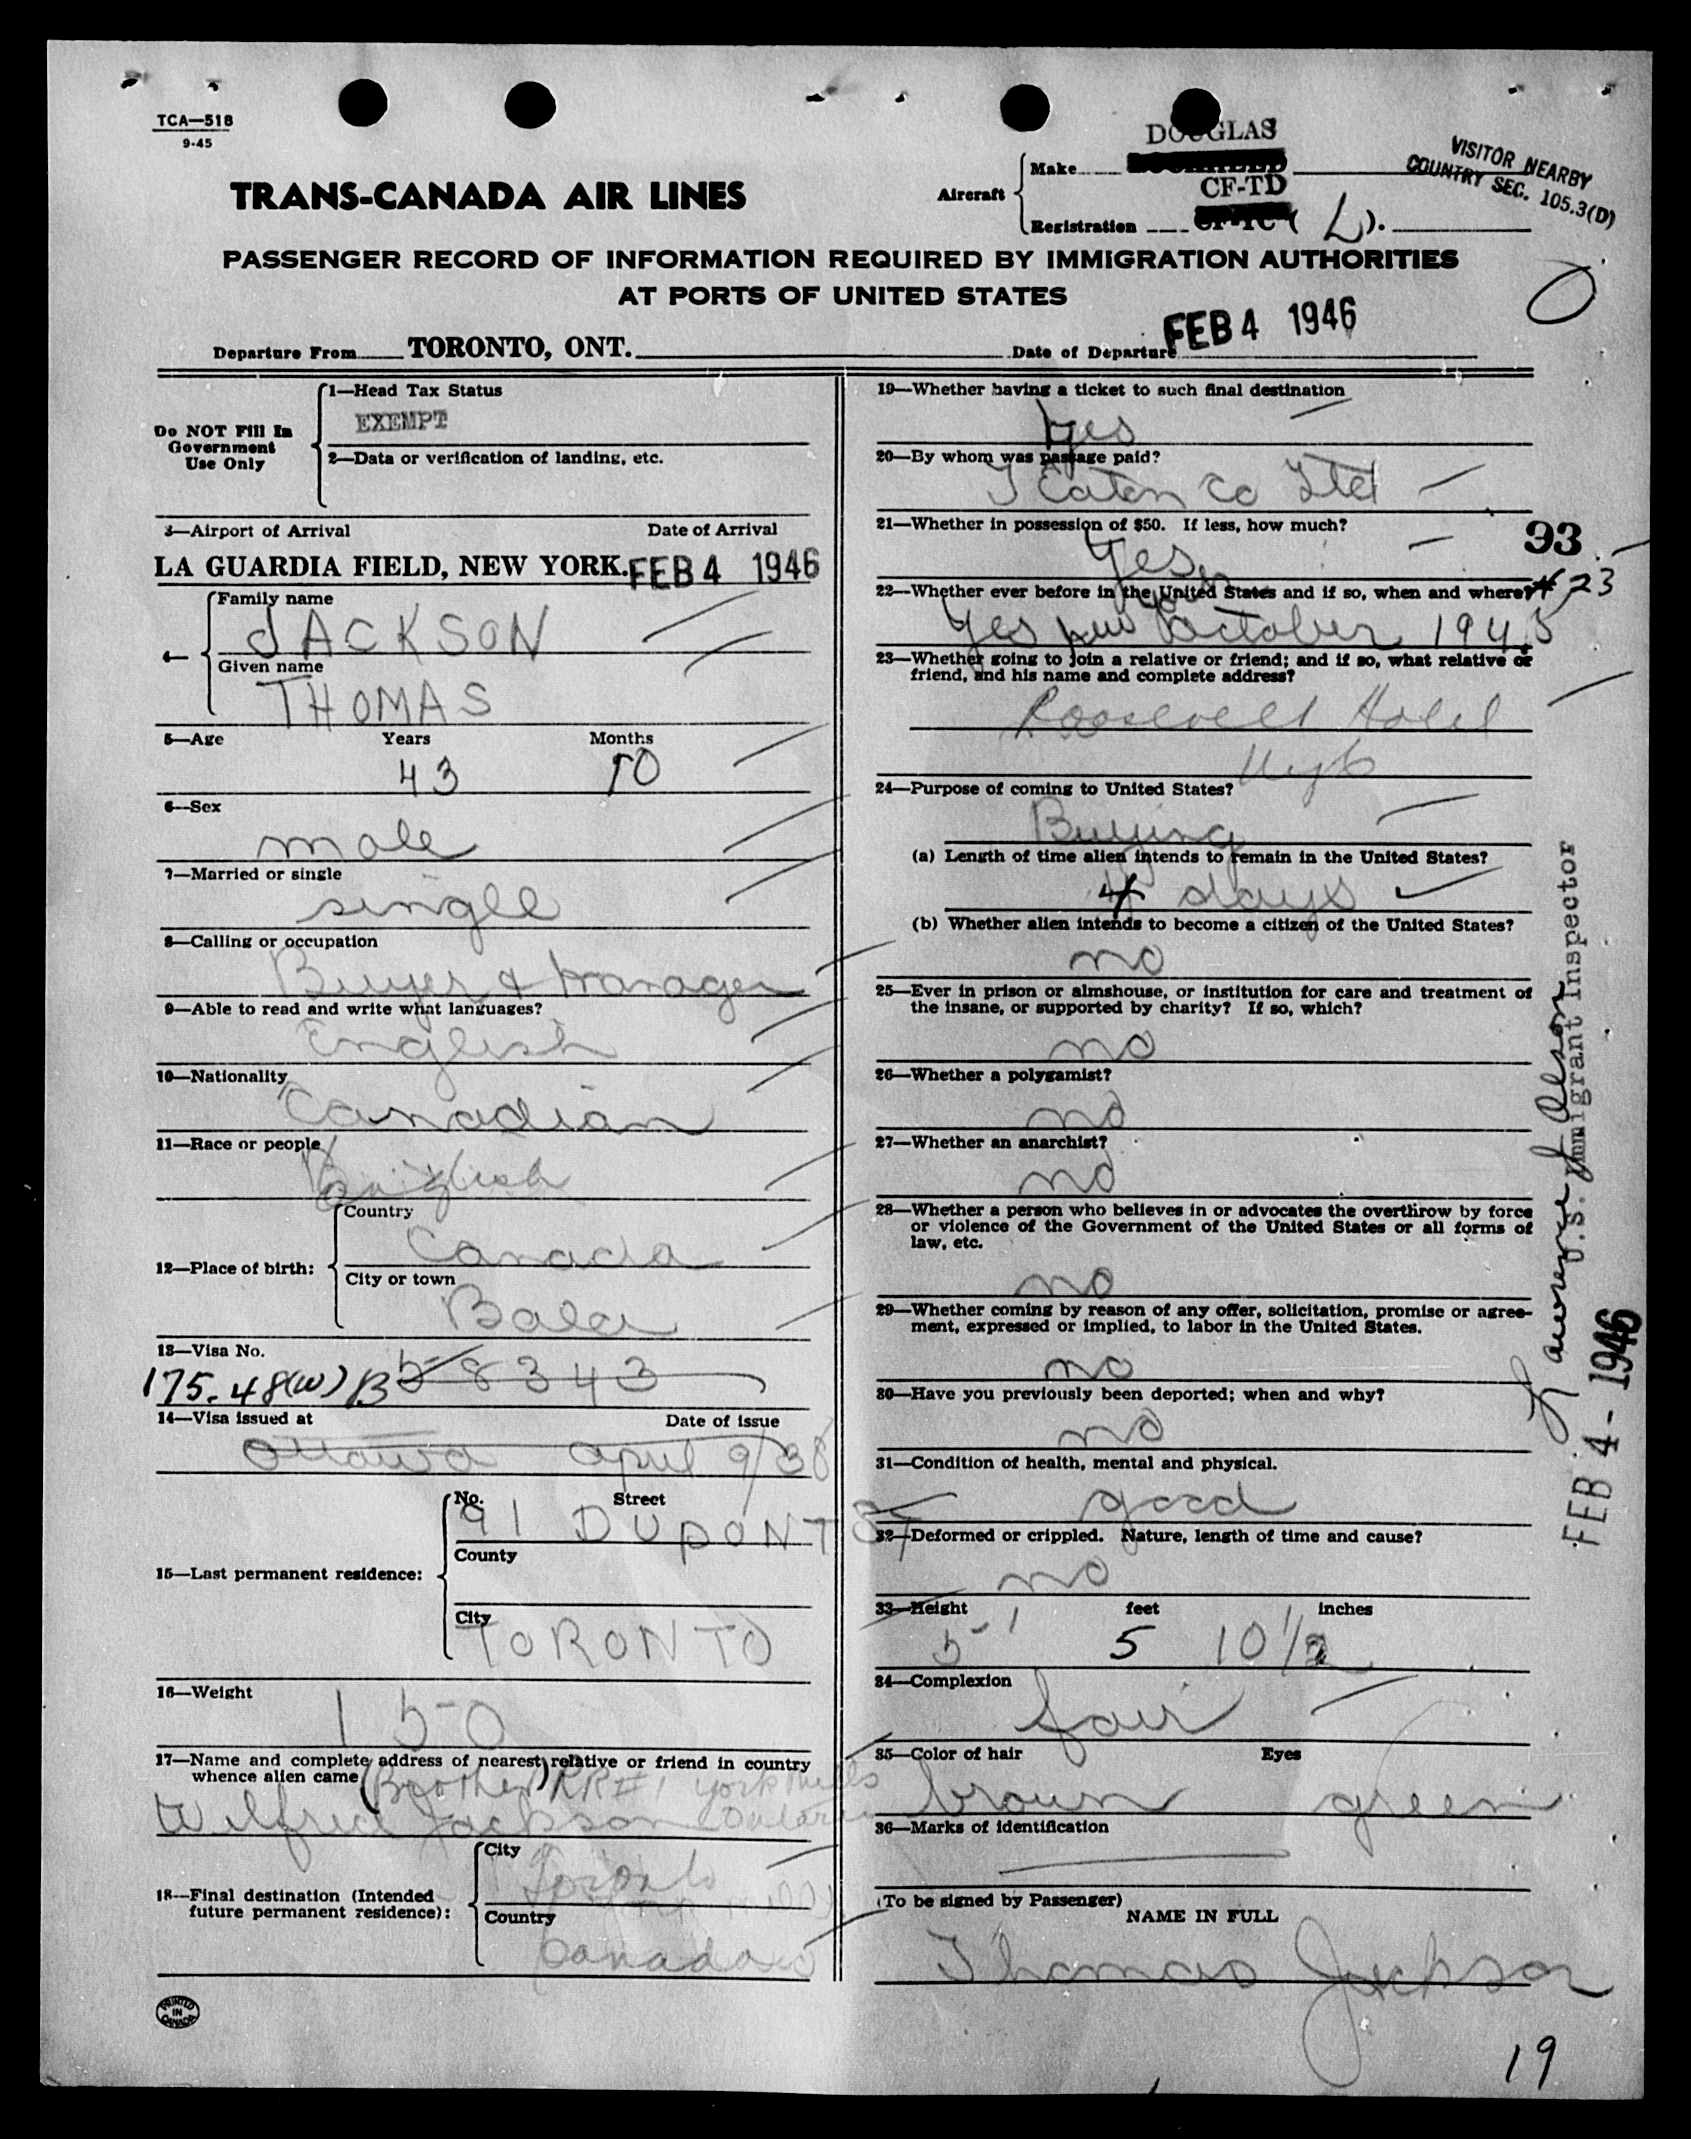 TCA—518
9-45
TRANS-CANADA AIR LINES
Aircraft
Make
DOUGLAS
Registration
CF-TD
CF-TC ( L ).
VISITOR NEARBY
COUNTRY SEC. 105.3(D)
PASSENGER RECORD OF INFORMATION REQUIRED BY IMMIGRATION AUTHORITIES
AT PORTS OF UNITED STATES
O
Departure From TORONTO, ONT. Date of Departure FEB 4 1946
Do NOT Fill In
Government
Use Only
1—Head Tax Status
EXEMPT
2—Data or verification of landing, etc.
3—Airport of Arrival Date of Arrival
LA GUARDIA FIELD, NEW YORK. FEB 4 1946
4—
Family name
JACKSON
Given name
THOMAS
5—Age Years Months
43 10
6—Sex
male
7—Married or single
single
8—Calling or occupation
Buyer & Manager
9—Able to read and write what languages?
English
10—Nationality
Canadian
11—Race or people
English
12—Place of birth:
Country
Canada
City or town
Bala
13—Visa No.
175.48(W) B 58343
14—Visa issued at Date of issue
Ottawa April 9/38
15—Last permanent residence:
No. Street
91 DUPONT ST
County
City
TORONTO
16—Weight
150
17—Name and complete address of nearest relative or friend in country
whence alien came
(Brother) RR#1 York Mills
Wilfred Jackson Ontario
18—Final destination (Intended
future permanent residence):
City
Toronto
Country
Canada
PRINTED
IN
CANADA
19—Whether having a ticket to such final destination
Yes
20—By whom was passage paid?
T Eaton Co Ltd
21—Whether in possession of $50. If less, how much?
Yes
93
22—Whether ever before in the United States and if so, when and where?
# 23
Yes October 1945
23—Whether going to join a relative or friend; and if so, what relative or
friend, and his name and complete address?
Roosevelt Hotel
24—Purpose of coming to United States?
Buying
(a) Length of time alien intends to remain in the United States?
4 days
(b) Whether alien intends to become a citizen of the United States?
no
25—Ever in prison or almshouse, or institution for care and treatment of
the insane, or supported by charity? If so, which?
no
26—Whether a polygamist?
no
27—Whether an anarchist?
no
28—Whether a person who believes in or advocates the overthrow by force
or violence of the Government of the United States or all forms of
law, etc.
no
29—Whether coming by reason of any offer, solicitation, promise or agree-
ment, expressed or implied, to labor in the United States.
no
30—Have you previously been deported; when and why?
no
31—Condition of health, mental and physical.
good
32—Deformed or crippled. Nature, length of time and cause?
no
33—Height feet inches
5' 5 10 1/2
34—Complexion
fair
35—Color of hair Eyes
brown green
36—Marks of identification
(To be signed by Passenger)
NAME IN FULL
Thomas Jackson
Lawrence J Olson
U.S. Immigrant Inspector
FEB 4 - 1946
19